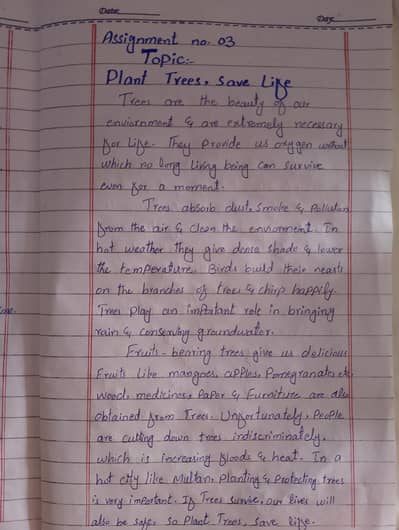 Date:
Day
Assignment no. 03
Topic:-
Plant Trees, Save Life
Trees are the beauty of our
enviornment & are extremely necessary
for life. They provide us oxygen without
which no long living being can survive
even for a moment.
Trees absorb dust, smoke & Pollution
from the air & clean the enviorment. In
hot weather they give dense shade & lower
the temperature. Birds build their nests
on the branches of trees & chirp happily.
Trees play an important role in bringing
rain & conserving groundwater.
Fruit-bearing trees give us delicious
Fruits like mangoes, apples, Pomegranates etc
wood, medicines, Paper & Furniture are also
obtained from Trees. Unfortunately, People
are cutting down trees indiscriminately,
which is increasing floods & heat. In a
hot city like Multan, Planting & Protecting trees
is very important. If Trees survive, our lives will
also be safe, so Plant Trees, save life.